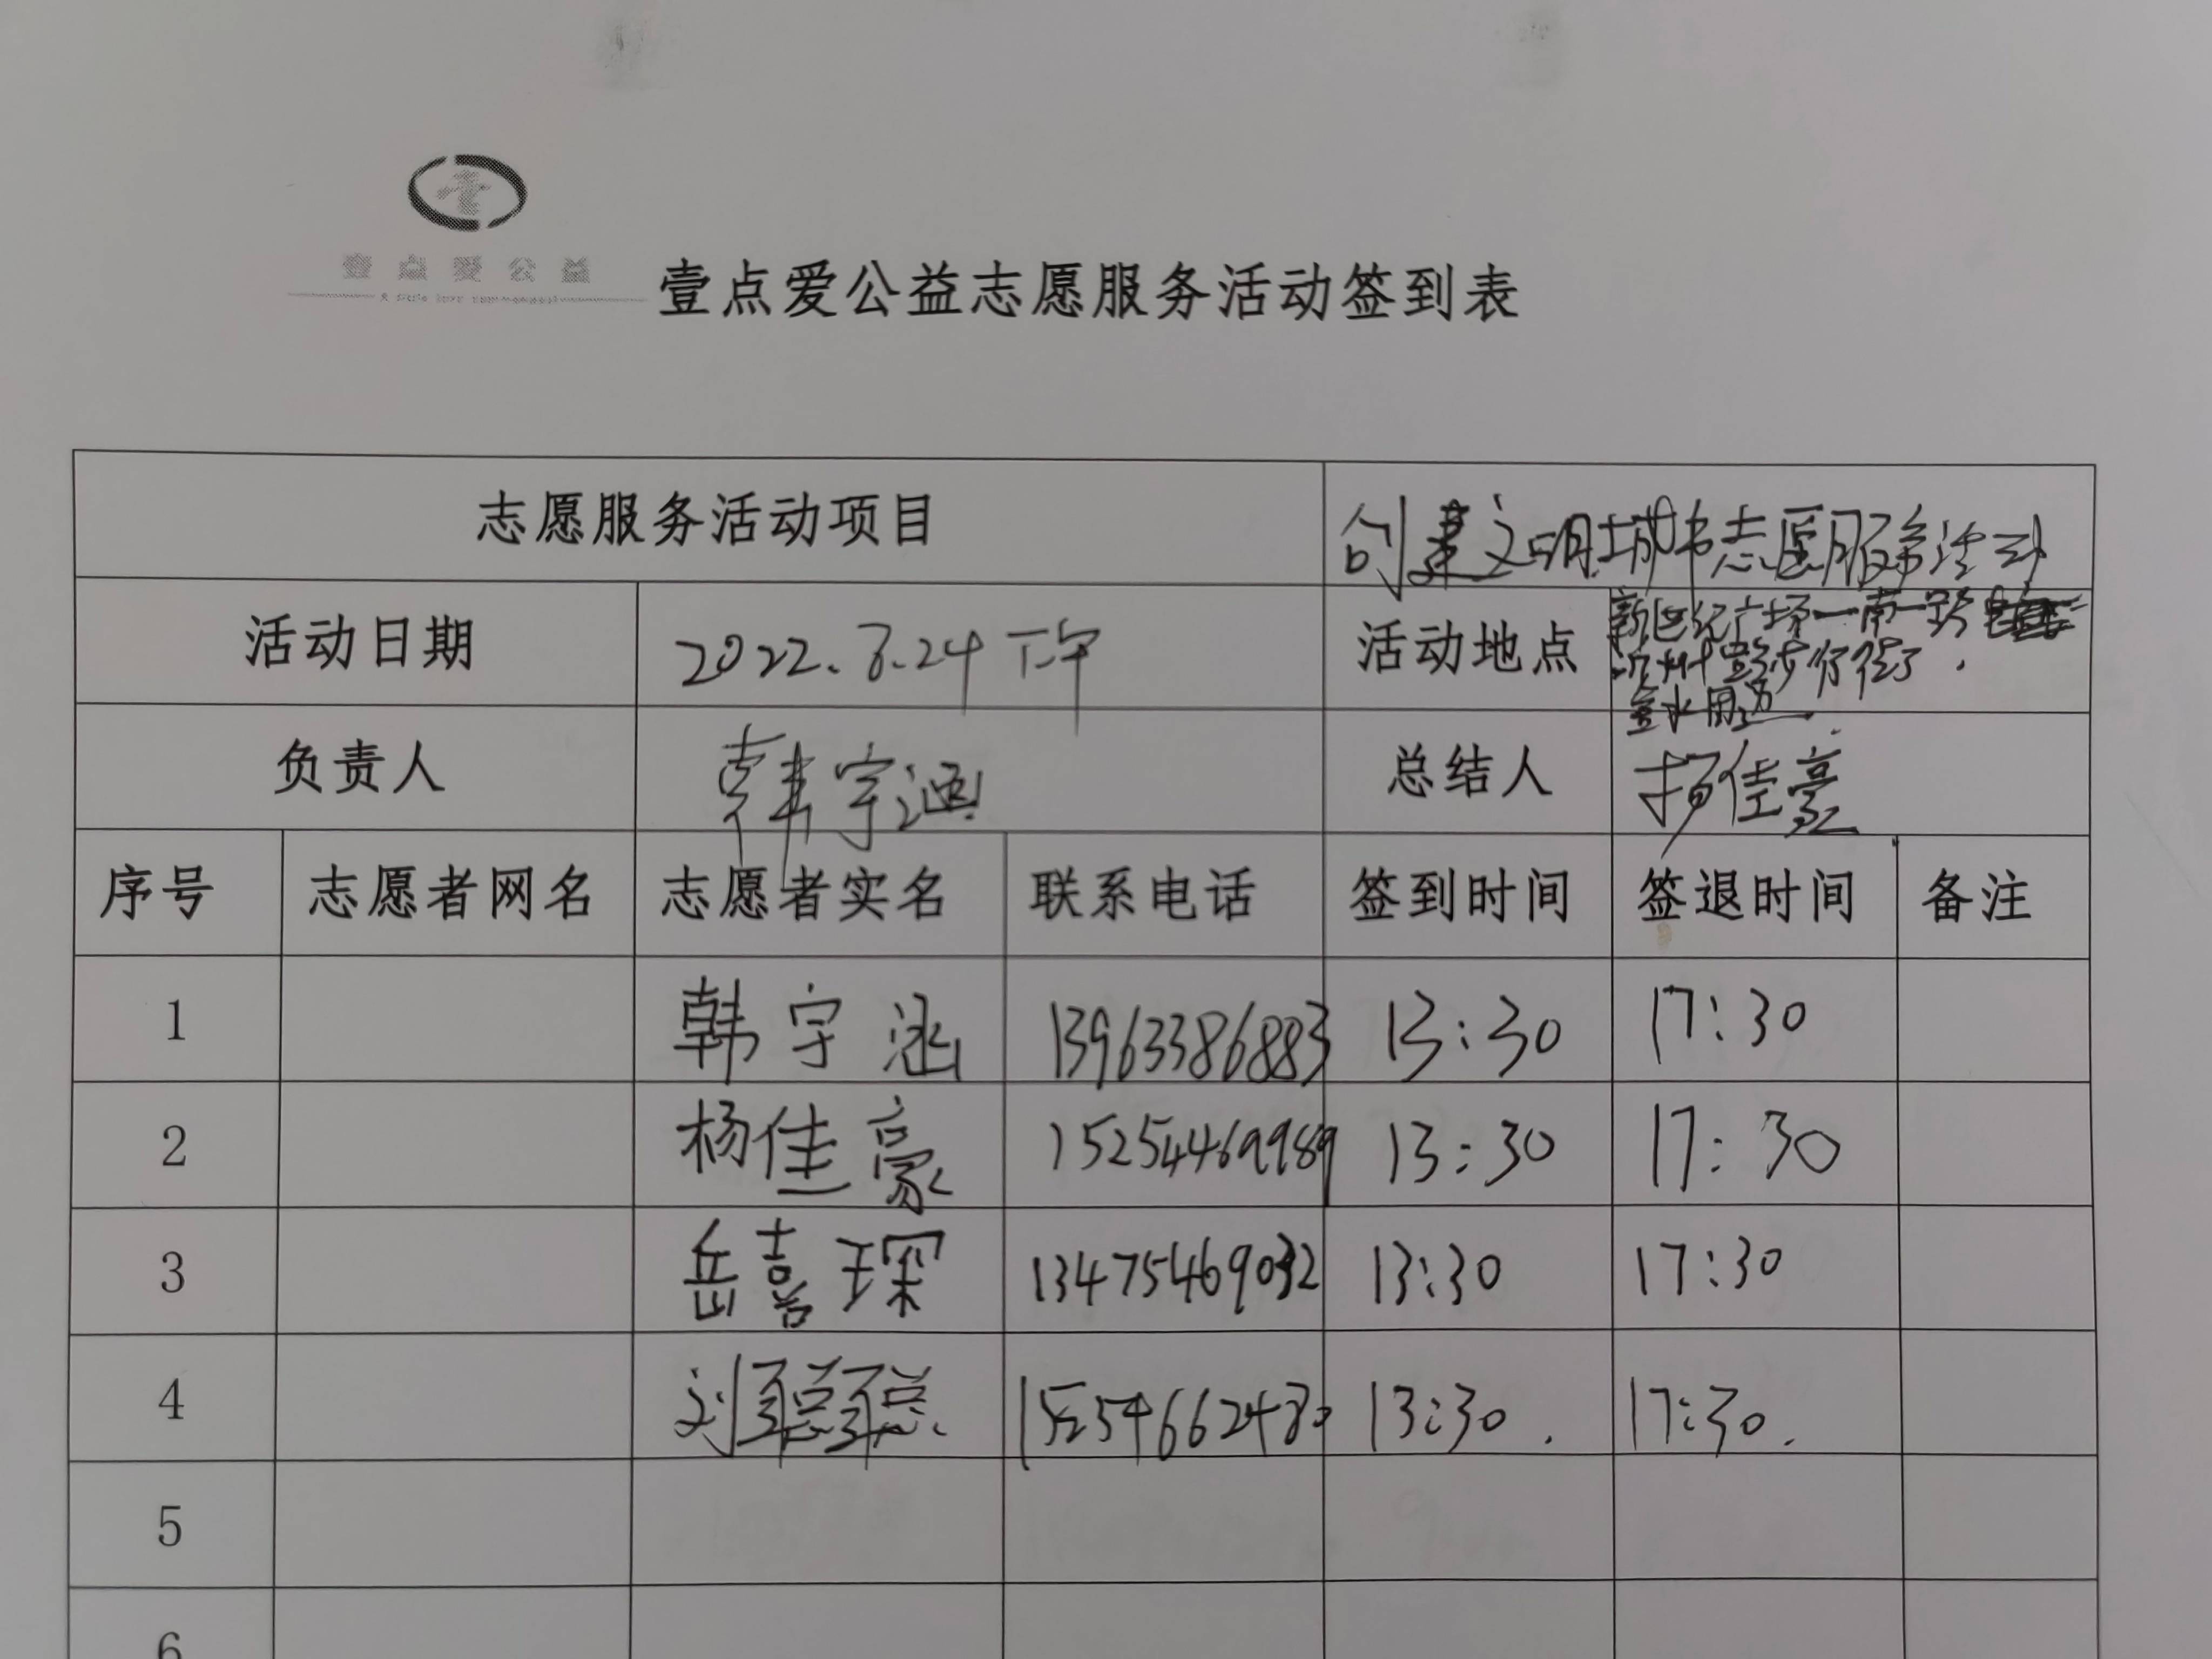 壹
壹点爱公益
壹点爱公益志愿服务活动签到表
志愿服务活动项目 创建文明城市志愿服务活动
活动日期 2022.8.24下午 活动地点 新世纪广场一南一路
步行街
负责人 韩宇涵 总结人 杨佳豪
序号 志愿者网名 志愿者实名 联系电话 签到时间 签退时间 备注
1 韩宇涵 13963386883 13:30 17:30
2 杨佳豪 15254469989 13:30 17:30
3 岳喜琛 13475469032 13:30 17:30
4 刘聪聪 15254662480 13:30. 17:30.
5
6